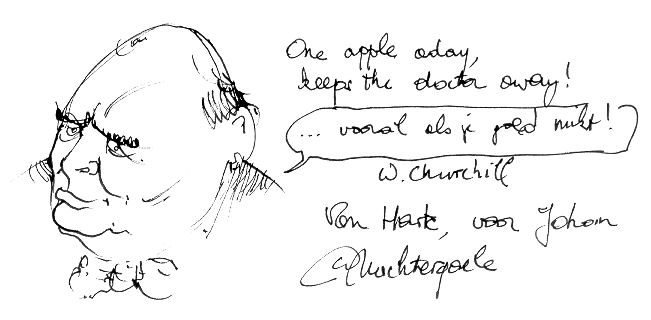 One apple aday,
keeps the doctor away!
... vooral als je goed mikt!
W. Churchill
Van Harte, voor Johan